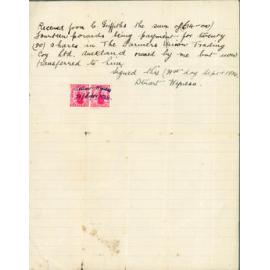 Received from C Griffiths the sum of (£14-00)
fourteen pounds being payment for twenty
(20) shares in The Farmers Union Trading
Coy Ltd. Auckland owned by me but now
transferred to him.
Signed this day Sept
Stuart